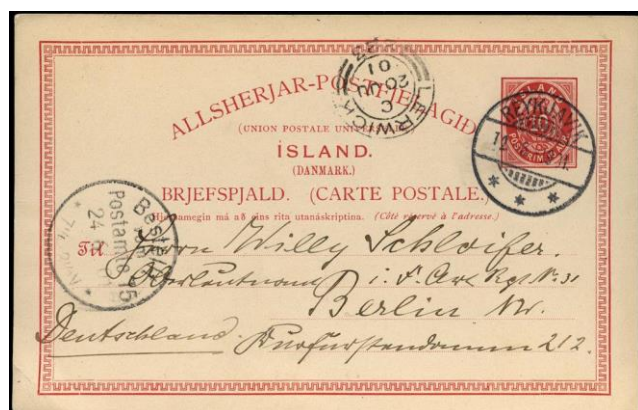 ALLSHERJAR-PÓSTFJELAGIÐ
(UNION POSTALE UNIVERSELLE)
ÍSLAND.
(DANMARK.)
BRJEFSPJALD. (CARTE POSTALE.)
Hinumegin má að eins rita utanáskriptina. (Côté réservé à l'adresse.)
Til Herrn Willy Schloifer.
Oberleutnant i. F. Art Rgt N. 31
Berlin W.
Deutschland. Kurfürstendamm 212.
LERWICH
REYKJAVIK
Bestellt
Postamte 15
24